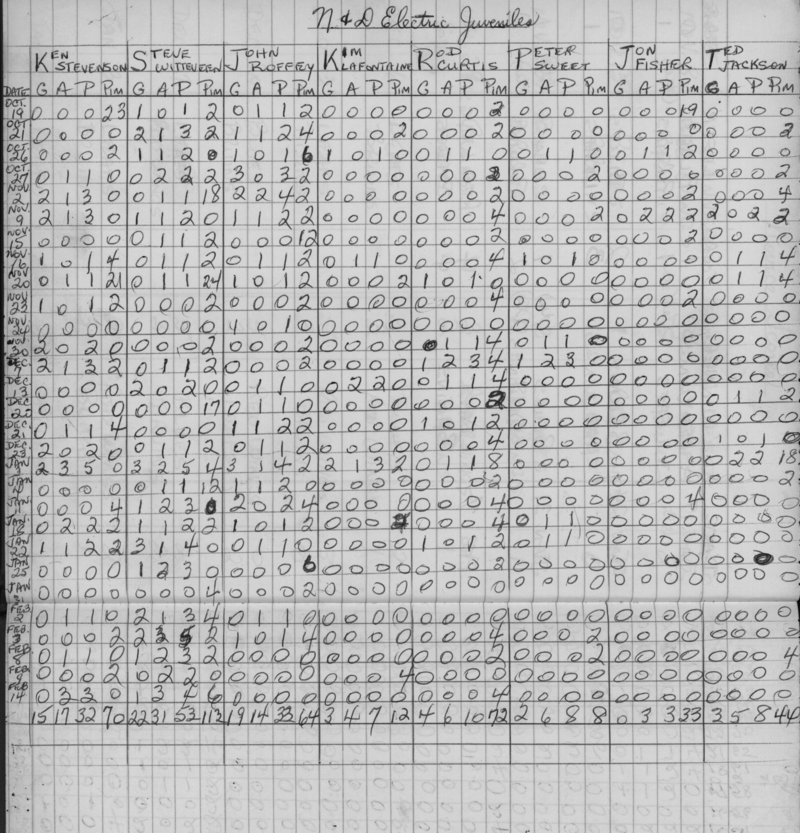 N & D Electric Juveniles
KEN STEVENSON STEVE WITTEVEEN JOHN ROFFEY KIM LAFONTAINE ROD CURTIS PETER SWEET JON FISHER TED JACKSON
DATE G A P PIM G A P PIM G A P PIM G A P PIM G A P PIM G A P PIM G A P PIM G A P PIM
OCT. 19 0 0 0 23 1 0 1 2 0 1 1 2 0 0 0 0 0 0 0 2 0 0 0 0 0 0 0 19 0 0 0 0
OCT 21 0 0 0 0 2 1 3 2 1 1 2 4 0 0 0 2 0 0 0 2 0 0 0 0 0 0 0 0 0 0 0 2
OCT 26 0 0 0 2 1 1 2 0 1 0 1 6 1 0 1 0 0 1 1 0 0 1 1 0 0 1 1 2 0 0 0 0
OCT 27 0 1 1 0 0 2 2 2 3 0 3 2 0 0 0 0 0 0 0 2 0 0 0 2 0 0 0 0 0 0 0 2
NOV 2 2 1 3 0 0 1 1 18 2 2 4 2 0 0 0 0 0 0 0 2 0 0 0 0 0 0 0 2 0 0 0 4
NOV. 9 2 1 3 0 1 1 2 0 1 1 2 2 0 0 0 0 0 0 0 4 0 0 0 2 0 2 2 2 2 0 2 2
NOV. 15 0 0 0 0 0 1 1 2 0 0 0 12 0 0 0 0 0 0 0 2 0 0 0 0 0 0 0 2 0 0 0 0
NOV. 16 1 0 1 4 0 1 1 2 0 1 1 2 0 1 1 0 0 0 0 4 1 0 1 0 0 0 0 0 0 1 1 4
NOV 20 0 1 1 21 0 1 1 24 1 0 1 2 0 0 0 2 1 0 1 0 0 0 0 0 0 0 0 0 0 1 1 4
NOV 23 1 0 1 2 0 0 0 2 0 0 0 2 0 0 0 0 0 0 0 4 0 0 0 0 0 0 0 2 0 0 0 0
NOV 24 0 0 0 0 0 0 0 0 1 0 1 0 0 0 0 0 0 0 0 0 0 0 0 0 0 0 0 0 0 0 0 0
NOV 30 2 0 2 0 0 0 0 2 0 0 0 2 0 0 0 0 0 1 1 4 0 1 1 0 0 0 0 0 0 0 0 0
DEC. 2 1 3 2 0 1 1 2 0 0 0 2 0 0 0 0 1 2 3 4 1 2 3 0 0 0 0 0 0 0 0 0
DEC 13 0 0 0 0 2 0 2 0 0 1 1 0 0 2 2 0 0 1 1 4 0 0 0 0 0 0 0 0 0 0 0 0
DEC 0 0 0 0 0 0 0 17 0 1 1 0 0 0 0 0 0 0 0 2 0 0 0 0 0 0 0 0 0 1 1 2
DEC. 21 0 1 1 4 0 0 0 0 1 1 2 2 0 0 0 0 1 0 1 2 0 0 0 0 0 0 0 0 0 0 0 0
DEC. 23 2 0 2 0 0 1 1 2 0 1 1 2 0 0 0 0 0 0 0 4 0 0 0 0 0 0 0 0 1 0 1 0
JAN 2 3 5 0 3 2 5 4 3 1 4 2 2 1 3 2 0 1 1 8 0 0 0 0 0 0 0 0 0 2 2 18
JAN 0 0 0 0 0 1 1 12 1 1 2 0 0 0 0 0 0 0 0 2 0 0 0 0 0 0 0 0 0 0 0 2
JAN. 0 0 0 4 1 2 3 0 2 0 2 4 0 0 0 0 0 0 0 4 0 0 0 0 0 0 0 4 0 0 0 0
JAN. 18 0 2 2 2 1 1 2 2 1 0 1 2 0 0 0 2 0 0 0 4 0 1 1 0 0 0 0 0 0 0 0 0
JAN 22 1 1 2 2 3 1 4 0 0 1 1 0 0 0 0 0 1 0 1 2 0 1 1 0 0 0 0 0 0 0 0 0
JAN 25 0 0 0 0 1 2 3 0 0 0 0 6 0 0 0 0 0 0 0 2 0 0 0 0 0 0 0 0 0 0 0 0
JAN 31 0 0 0 0 0 0 0 4 0 0 0 2 0 0 0 0 0 0 0 0 0 0 0 0 0 0 0 0 0 0 0 0
FEB. 2 0 1 1 0 2 1 3 4 0 1 1 0 0 0 0 0 0 0 0 0 0 0 0 0 0 0 0 0 0 0 0 0
FEB. 3 0 0 0 2 2 3 5 2 1 0 1 4 0 0 0 0 0 0 0 4 0 0 0 2 0 0 0 0 0 0 0 0
FEB. 8 0 1 1 0 1 2 3 2 0 0 0 0 0 0 0 0 0 0 0 2 0 0 0 2 0 0 0 0 0 0 0 4
FEB. 9 0 0 0 2 0 2 2 0 0 0 0 0 0 0 0 4 0 0 0 0 0 0 0 0 0 0 0 0 0 0 0 0
FEB 14 0 3 3 0 1 3 4 6 0 0 0 0 0 0 0 0 0 0 0 4 0 0 0 0 0 0 0 0 0 0 0 0
15 17 32 70 22 31 53 113 19 14 33 64 3 4 7 12 4 6 10 72 2 6 8 8 0 3 3 33 3 5 8 44